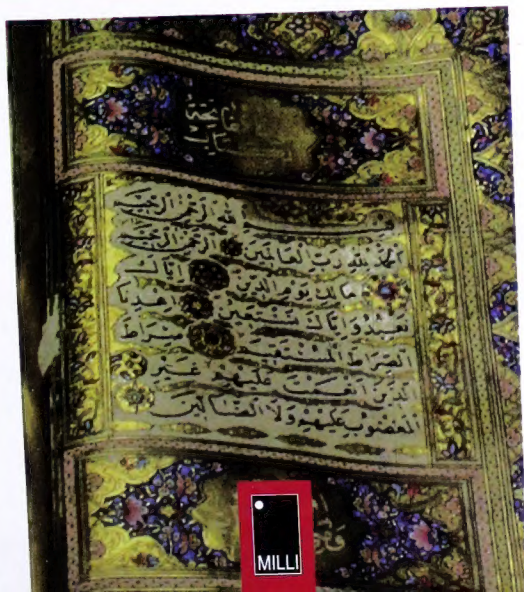 فاتحة
الكتاب
بسم الله الرحمن الرحيم
الحمد لله رب العالمين الرحمن الرحيم
مالك يوم الدين اياك
نعبد واياك نستعين اهدنا
الصراط المستقيم صراط
الذين انعمت عليهم غير
المغضوب عليهم ولا الضالين
MILLI